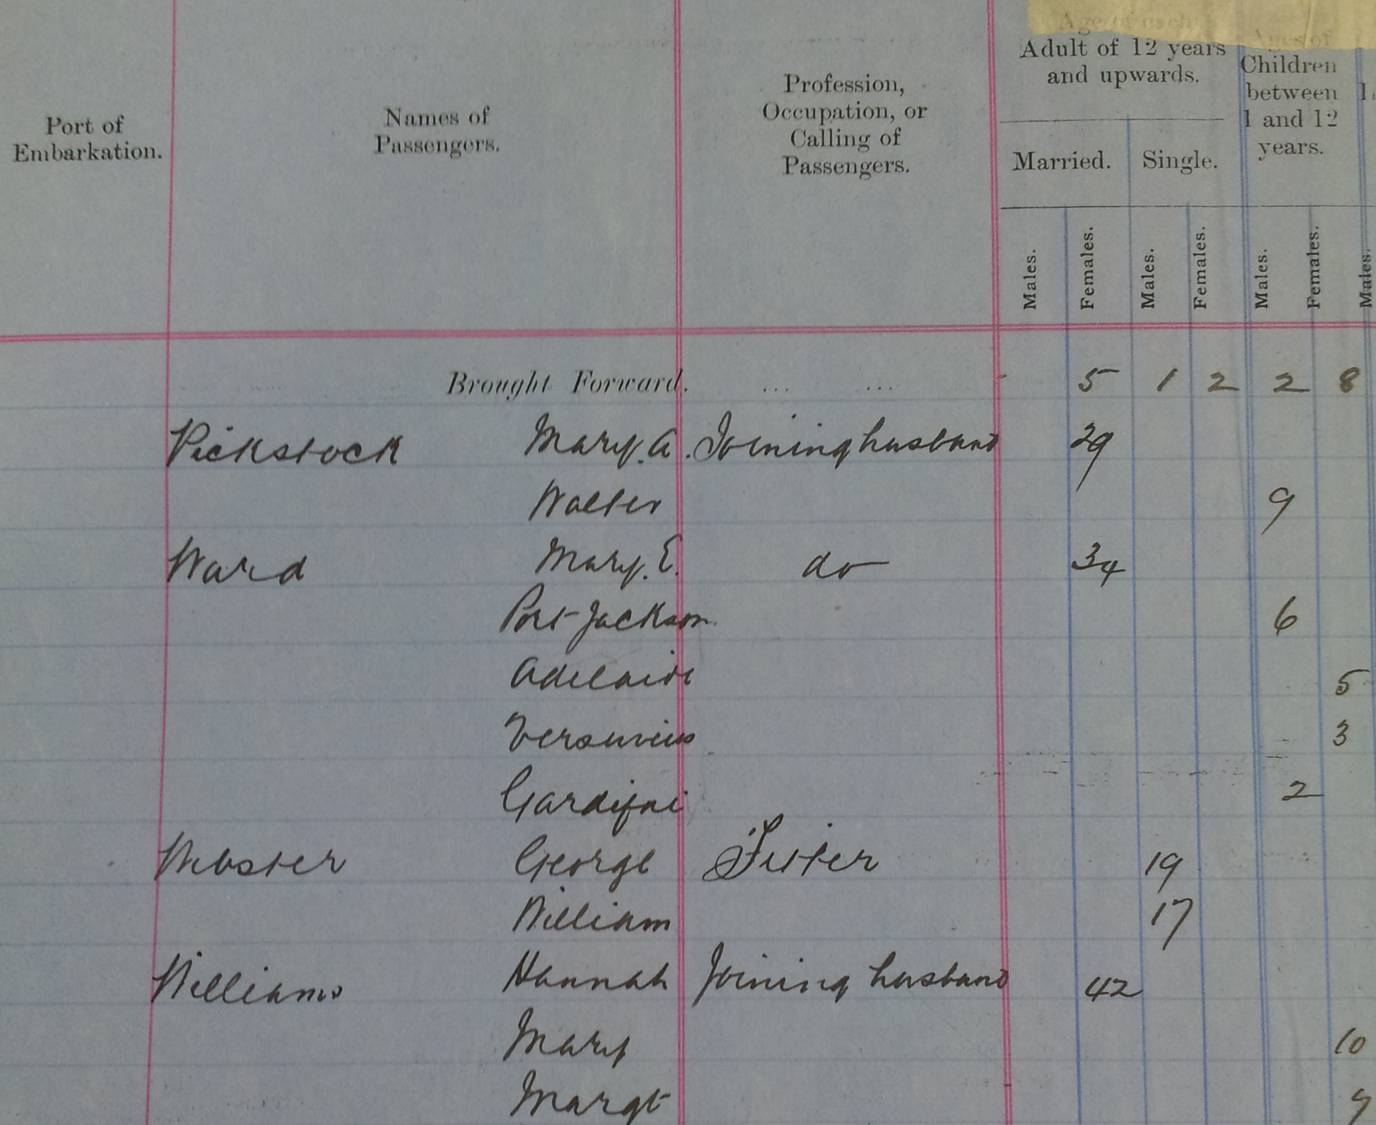 Age of each
Adult of 12 years
and upwards.
Ages of
Children
between
1 and 12
years.
Port of
Embarkation.
Names of
Passengers.
Profession,
Occupation, or
Calling of
Passengers.
Married. Single.
Males. Females. Males. Females. Males. Females. Males.
Brought Forward. ... ... 5 1 2 2 8
Pickstock Mary. A. Joining husband 29
Walter 9
Ward Mary. E. do 34
Port Jackson 6
Adelaide 5
3
2
Webster George Fitter 19
William 17
Williams Hannah Joining husband 42
Mary 10
Margt